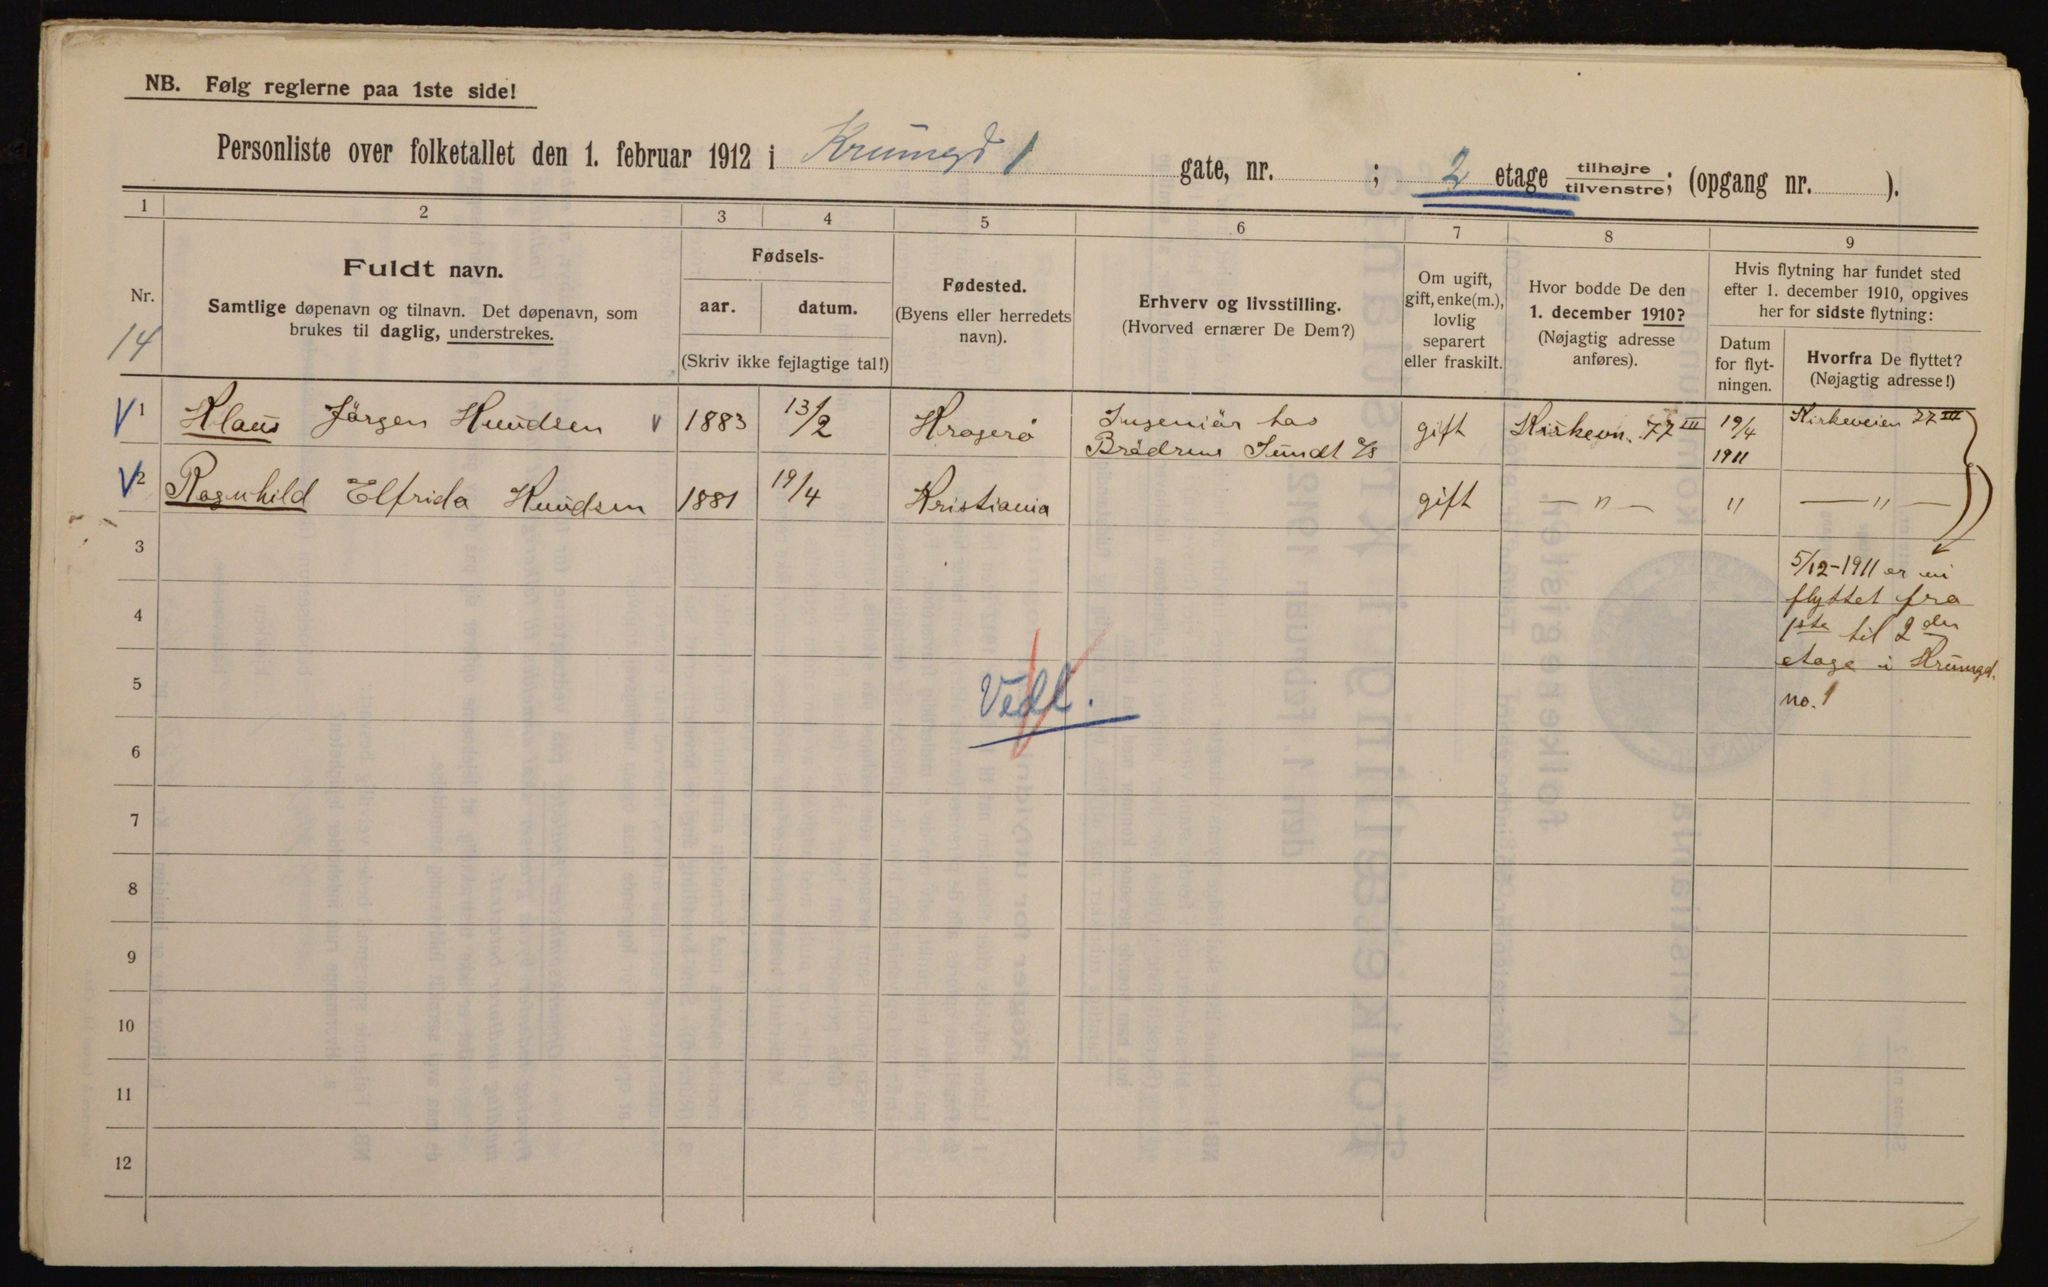 NB. Følg reglerne paa 1ste side!
Personliste over folketallet den 1. februar 1912 i Krumgd 1 gate, nr. ; 2 etage tilhøjre tilvenstre; (opgang nr. ).
1 2 3 4 5 6 7 8 9
Nr.
14
Fuldt navn.
Samtlige døpenavn og tilnavn. Det døpenavn, som
brukes til daglig, understrekes.
Fødsels-
aar. datum.
(Skriv ikke fejlagtige tal!)
Fødested.
(Byens eller herredets
navn).
Erhverv og livsstilling.
(Hvorved ernærer De Dem?)
Om ugift,
gift, enke(m.),
lovlig
separert
eller fraskilt.
Hvor bodde De den
1. december 1910?
(Nøjagtig adresse
anføres).
Hvis flytning har fundet sted
efter 1. december 1910, opgives
her for sidste flytning:
Datum
for flyt-
ningen.
Hvorfra De flyttet?
(Nøjagtig adresse!)
V 1 Klaus Jørgen Knudsen v 1883 13/2 Kragerø Ingeniør hos gift Kirkevn. 77 III 19/4 Kirkeveien 77 III
Brødrene Sundt 1911
V 2 Ragnhild Elfrida Knudsen 1881 19/4 Kristiania gift — " — " — " —
3
5/12-1911 er vi
4 flyttet fra
1ste til 2den
5 etage i Krumgd.
no. 1
Vedl.
6
7
8
9
10
11
12